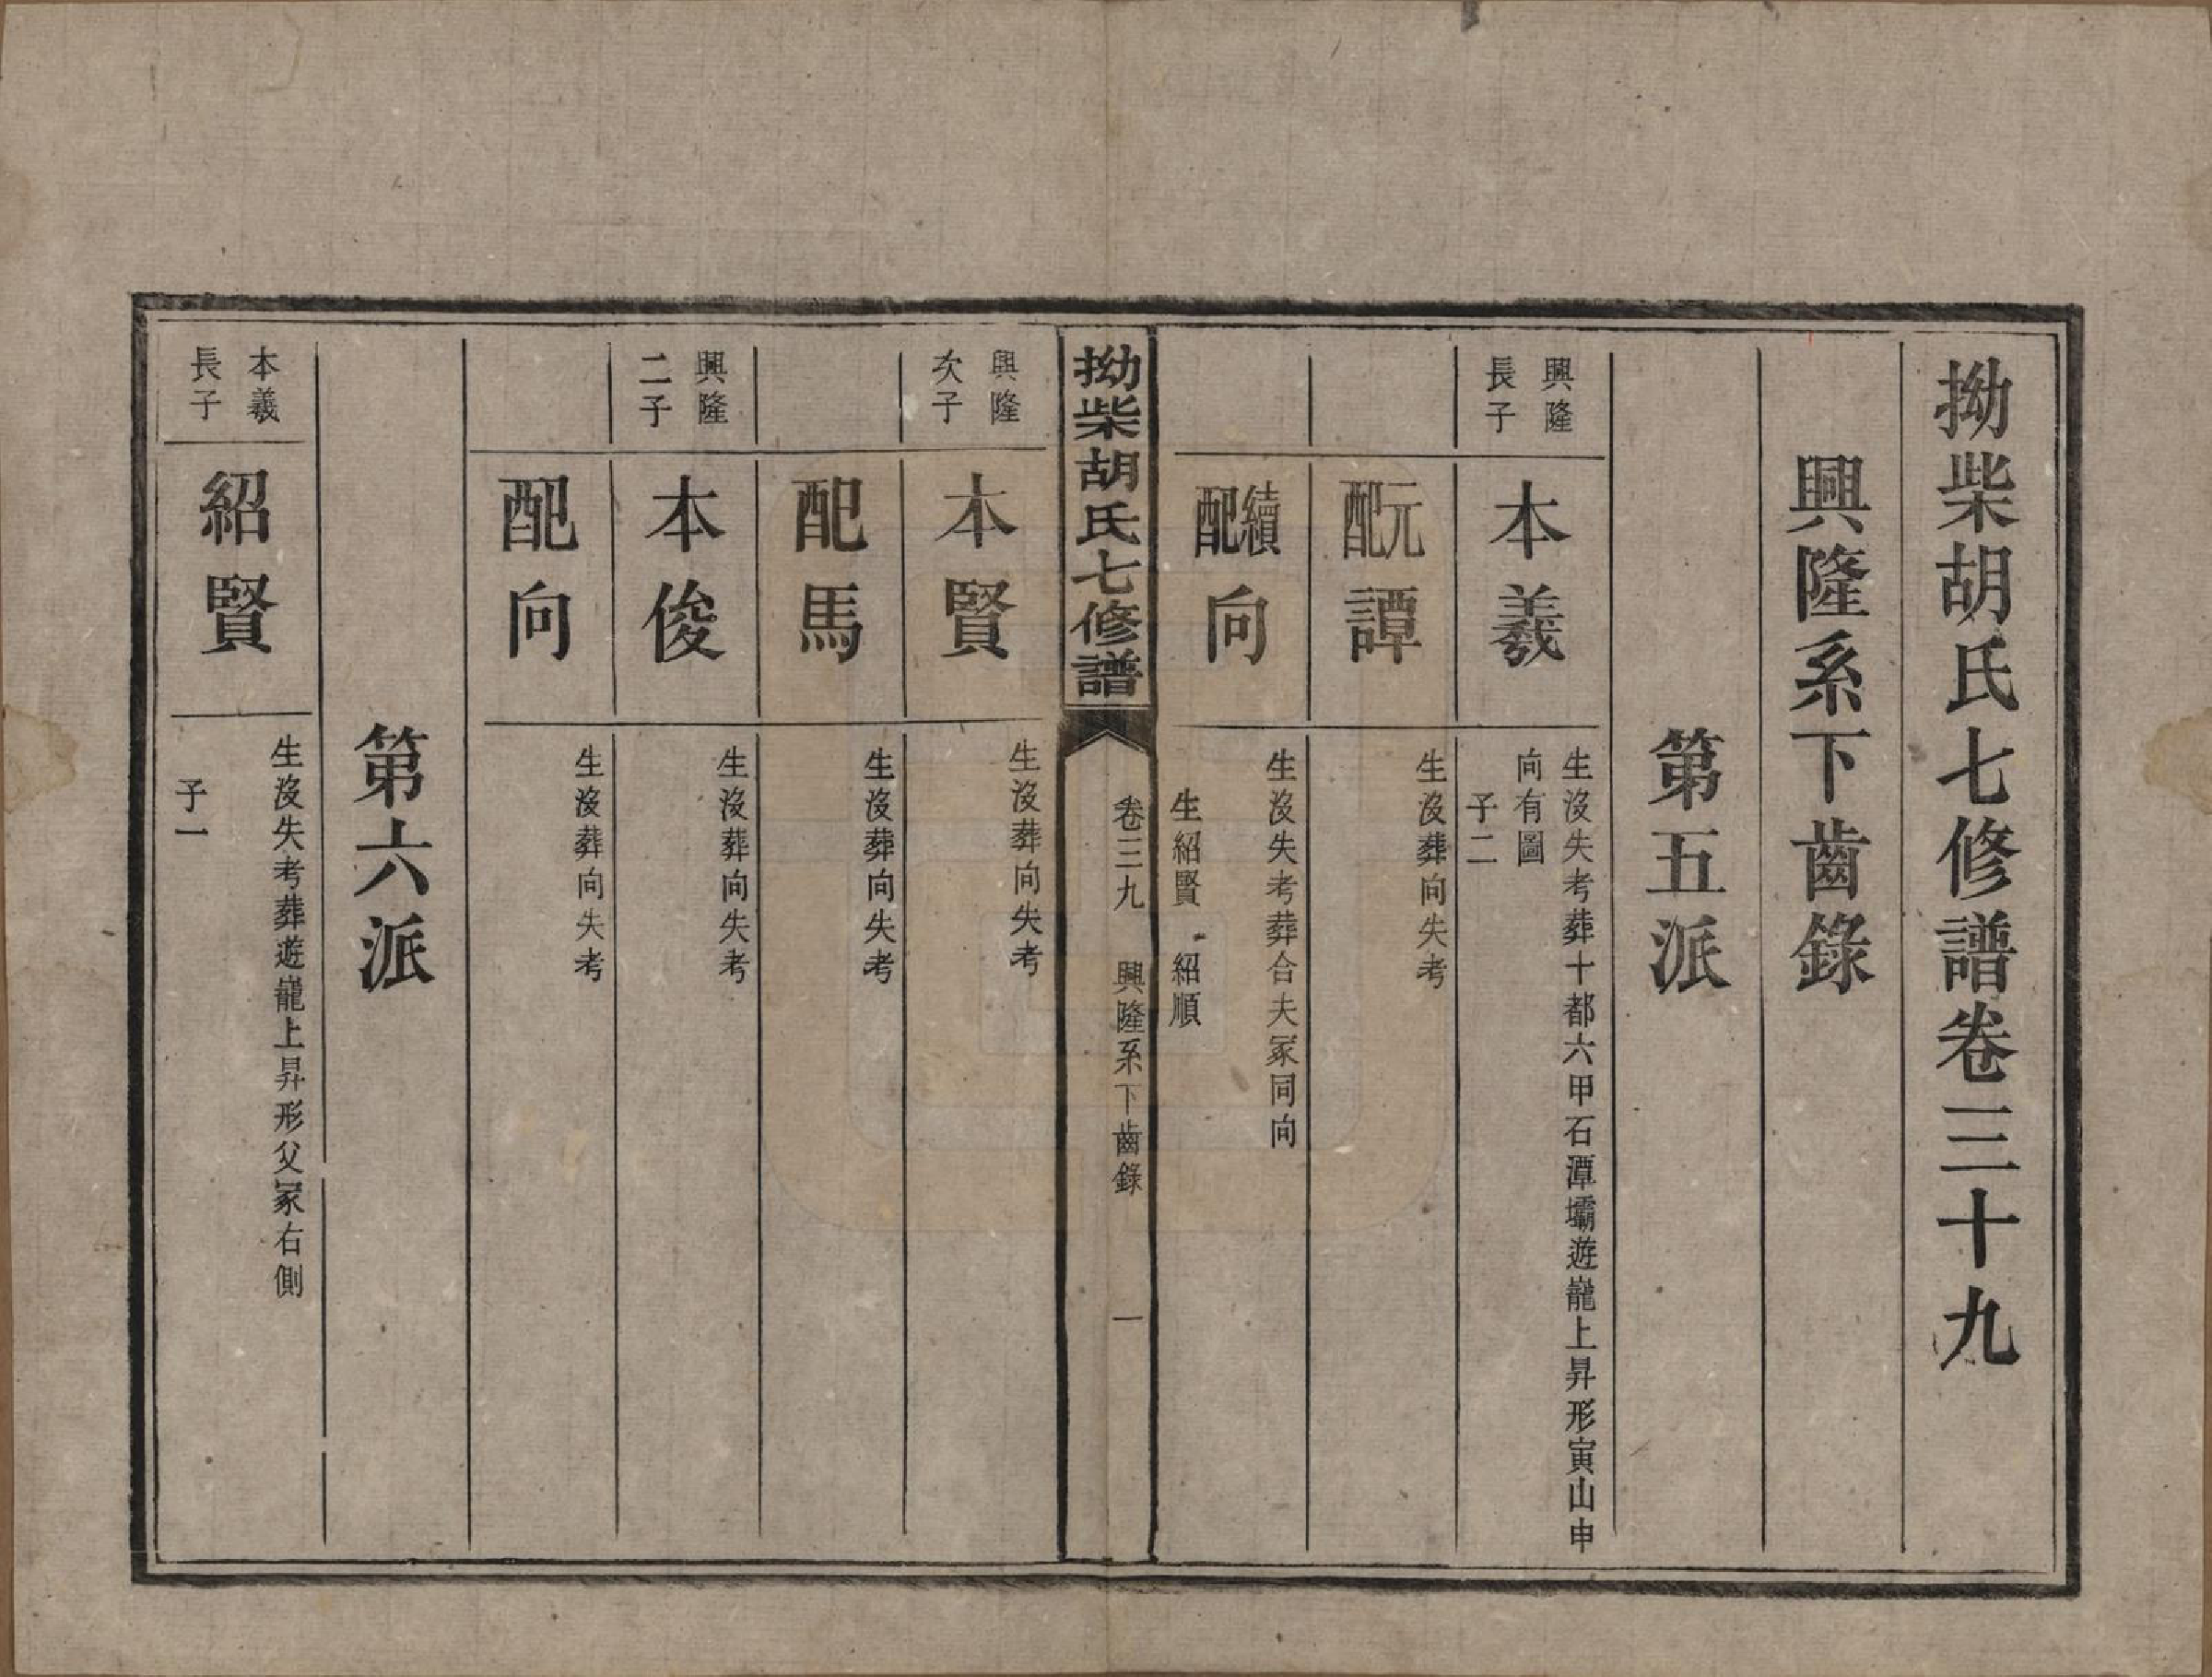 拗柴胡氏七修譜卷三十九
興隆系下齒錄
第五派
興隆
長子
本羲
生沒失考葬十都六甲石潭壩遊巃上昇形寅山申
向有圖
子二
元配譚
生沒葬向失考
續配向
生沒失考葬合夫冢同向
生紹賢 紹順
拗柴胡氏七修譜
卷三九 興隆系下齒錄 一
興隆
次子
本賢
生沒葬向失考
配馬
生沒葬向失考
興隆
三子
本俊
生沒葬向失考
配向
生沒葬向失考
第六派
本羲
長子
紹賢
生沒失考葬遊巃上昇形父冢右側
子一